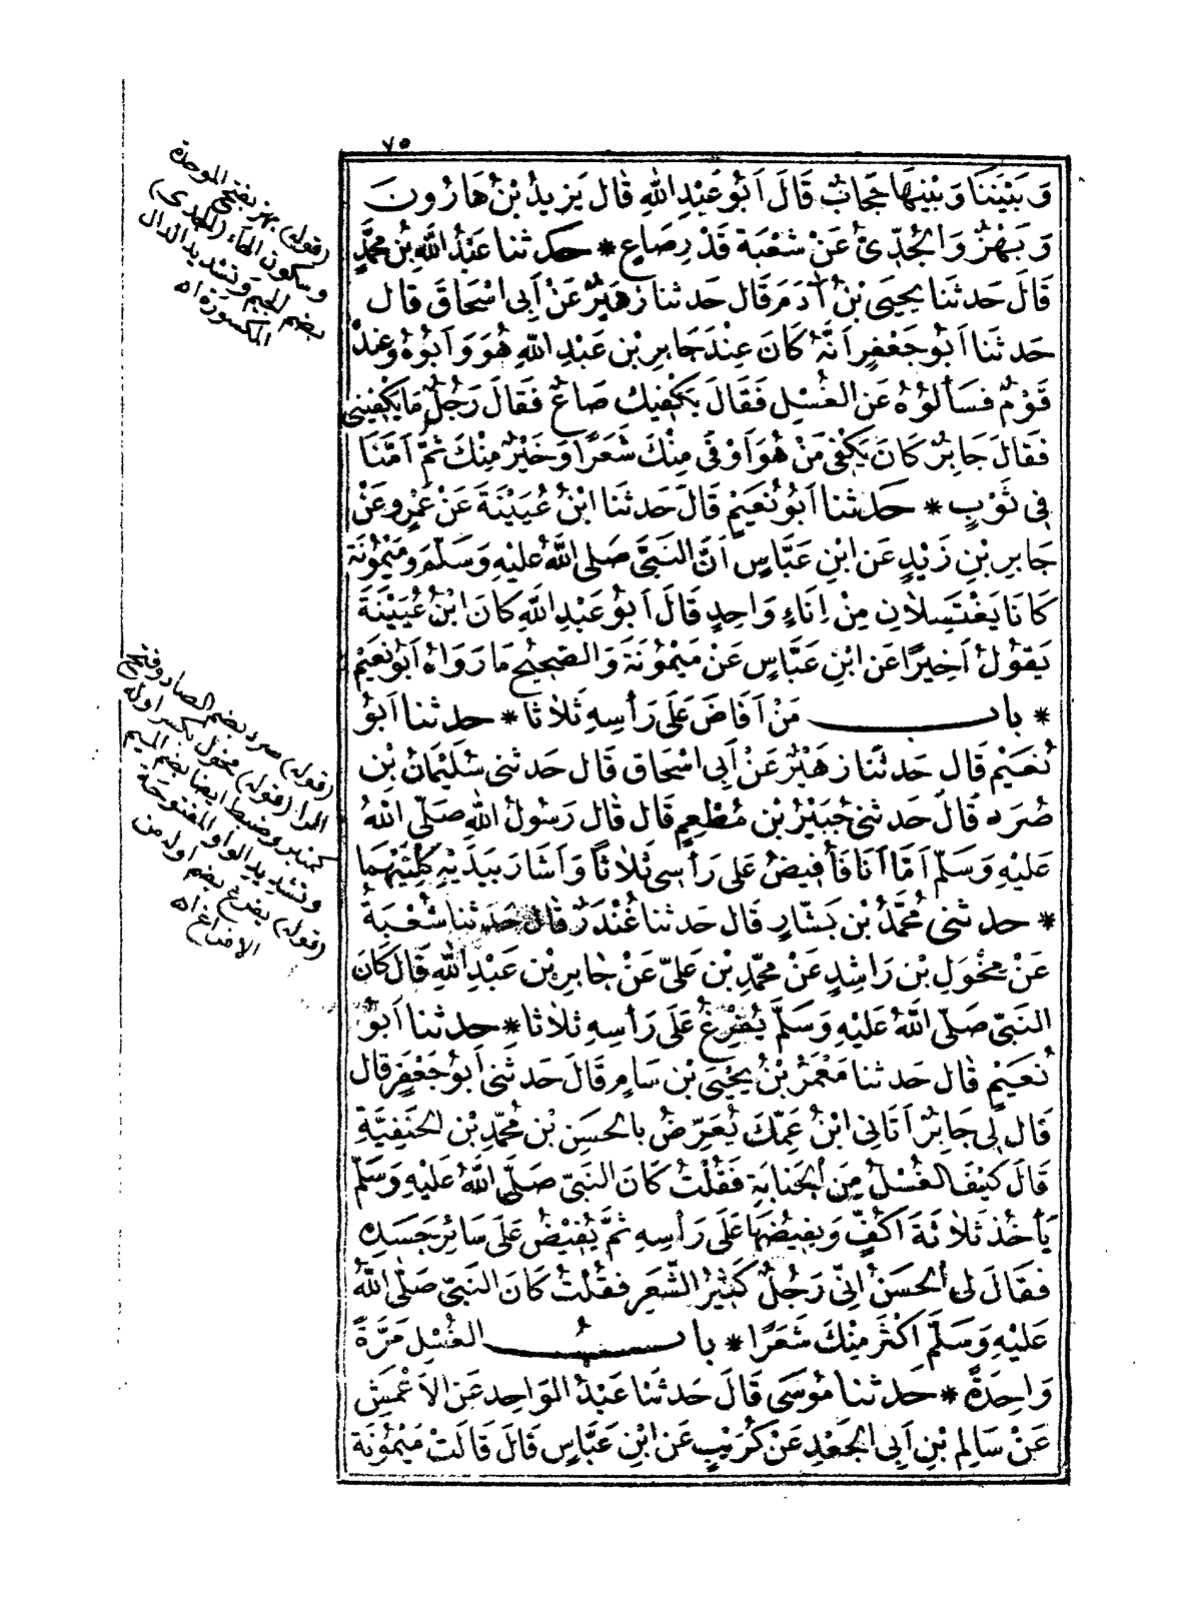 ٧٥
وَبَيْنَنَا وَبَيْنَهَا حِجَابٌ قَالَ اَبُو عَبْدِ اللهِ قَالَ يَزِيدُ بْنُ هَارُونَ
وَبَهْزٌ وَالْجُدِّىُّ عَنْ شُعْبَةَ قَدْرِ صَاعٍ * حَدثنا عَبْدُ اللهِ بْنُ مُحَمَّدٍ
قَالَ حَدثنَا يَحْيَى بْنُ اٰدَمَ قَالَ حَدثنا زُهَيْرٌ عَنْ اَبِى اسْحَاقَ قال
حَدثنَا اَبُو جَعْفَرٍ اَنَّهُ كَانَ عِنْدَ جَابِرِ بْنِ عَبْدِ اللهِ هُوَ وَاَبُوهُ وَعِنْدَهُ
قَوْمٌ فَسَأَلُوُهُ عَنِ الغُسْلِ فَقَالَ يَكْفِيكَ صَاعٌ فَقَالَ رَجُلٌ مَا يَكْفِينِى
فَقَالَ جَابِرٌ كَانَ يَكْفِى مَنْ هُوَ اَوْفَى مِنْكَ شَعَرًا وَخَيْرٌ مِنْكَ ثُمَّ اَمَّنَا
فِى ثَوْبٍ * حَدثنا اَبُو نُعَيْمٍ قَالَ حَدثنَا ابْنُ عُيَيْنَةَ عَنْ عَمْرٍو عَنْ
جَابِرِ بْنِ زَيْدٍ عَن ابْنِ عَبَّاسٍ اَنَّ النَبِىَّ صَلى اللهُ عَلَيْهِ وَسَلّمَ وَمَيْمُونَةَ
كَانَا يَغْتَسِلَانِ مِنْ اِنَاءٍ وَاحِدٍ قَالَ اَبُو عَبْدِ اللهِ كَانَ ابْنُ عُيَيْنَةَ
يَقُولُ اَخِيرًا عَن ابْنِ عَبَّاسٍ عَنْ مَيْمُونَةَ وَالصَّحِيحُ مَا رَوَاهُ اَبُو نُعَيْمٍ
* باب مَنْ اَفَاضَ عَلَى رَأسِهِ ثَلاثا * حدثنا اَبُو
نُعَيْمٍ قَال حَدثنا زهَيْرٌ عَنْ اَبِى اسْحَاقَ قَال حَدثنى سُلَيْمَانُ بْن
صُرَدٍ قَالَ حَدثنى جُبَيْرُ بْن مُطْعِمٍ قَال قَال رَسُولُ اللهِ صَلّى اللهُ
عَلَيْهِ وَسَلّمَ اَمَّا اَنَا فَأُفِيضُ عَلَى رَأسِى ثَلَاثاً وَاَشَارَ بِيَدَيْهِ كِلْتَيْهِمَا
* حدثنى مُحَمَّدُ بْن بَشَّارٍ قَال حَدثنا غُنْدَرٌ قَال حَدثنا شُعْبَةُ
عَنْ مِخْوَلِ بْن رَاشِدٍ عَنْ مُحمّدِ بْن عَلىّ عَنْ جَابِرِ بْن عَبْدِ اللهِ قَالَ كَانَ
النَبىّ صَلّى اللهُ عَلَيْهِ وَسَلَّمَ يُفْرِغُ عَلَى رَأسِهِ ثلاثا * حدثنا اَبُو
نُعَيْمٍ قَال حَدثنا مَعْمَرُ بْنُ يَحْيَى بْن سَامٍ قَالَ حَدثَنى اَبُو جَعْفَرٍ قَال
قَال لِى جَابِرٌ اَتَانِى ابْنُ عَمِّكَ يُعَرِّضُ بالحَسَنِ بْن مُحمّدِ بْن الحَنَفِيَّةِ
قَالَ كَيْفَ الغُسْلُ مِنَ الجَنَابَةِ فَقُلْتُ كَانَ النَبىّ صَلَّى اللهُ عَلَيْهِ وَسَلّمَ
يَأخُذ ثَلَاثَةَ اَكُفٍّ وَيُفِيضُهَا عَلَى رَأسِهِ ثُمَّ يُفِيْضُ عَلَى سَائِرِ جَسَدِهِ
فَقَالَ لِى الحَسَنُ اِنّى رَجُلٌ كَثِيْرُ الشَّعَرِ فَقُلْتُ كَانَ النَبىّ صَلَّى اللهُ
عَلَيْهِ وَسَلَّمَ اَكْثَرَ مِنْكَ شَعَرًا * باب الغُسْلِ مَرَّةً
وَاحِدَةً * حَدثنا مُوسَى قَالَ حَدثنا عَبْدُ الوَاحِدِ عَن الاَعْمَشِ
عَنْ سَالِمِ بْنِ اَبِى الجَعْدِ عَنْ كُرَيْبٍ عَن ابْنِ عَبَّاسٍ قَالَ قَالَتْ مَيْمُونَةُ
(قوله) بهز بفتح الموحدة
وسكون الهاء (الجدى)
بضم الجيم وتشديد الدال
المكسورة اه
(قوله) صرد بضم الصاد وفتح
الرا (قوله) مخول بكسر اوله
كمنبر وضبط ايضا بضم الميم
وتشديد الواو المفتوحة
(قوله) يفرغ بضم اوله من
الافراغ اه